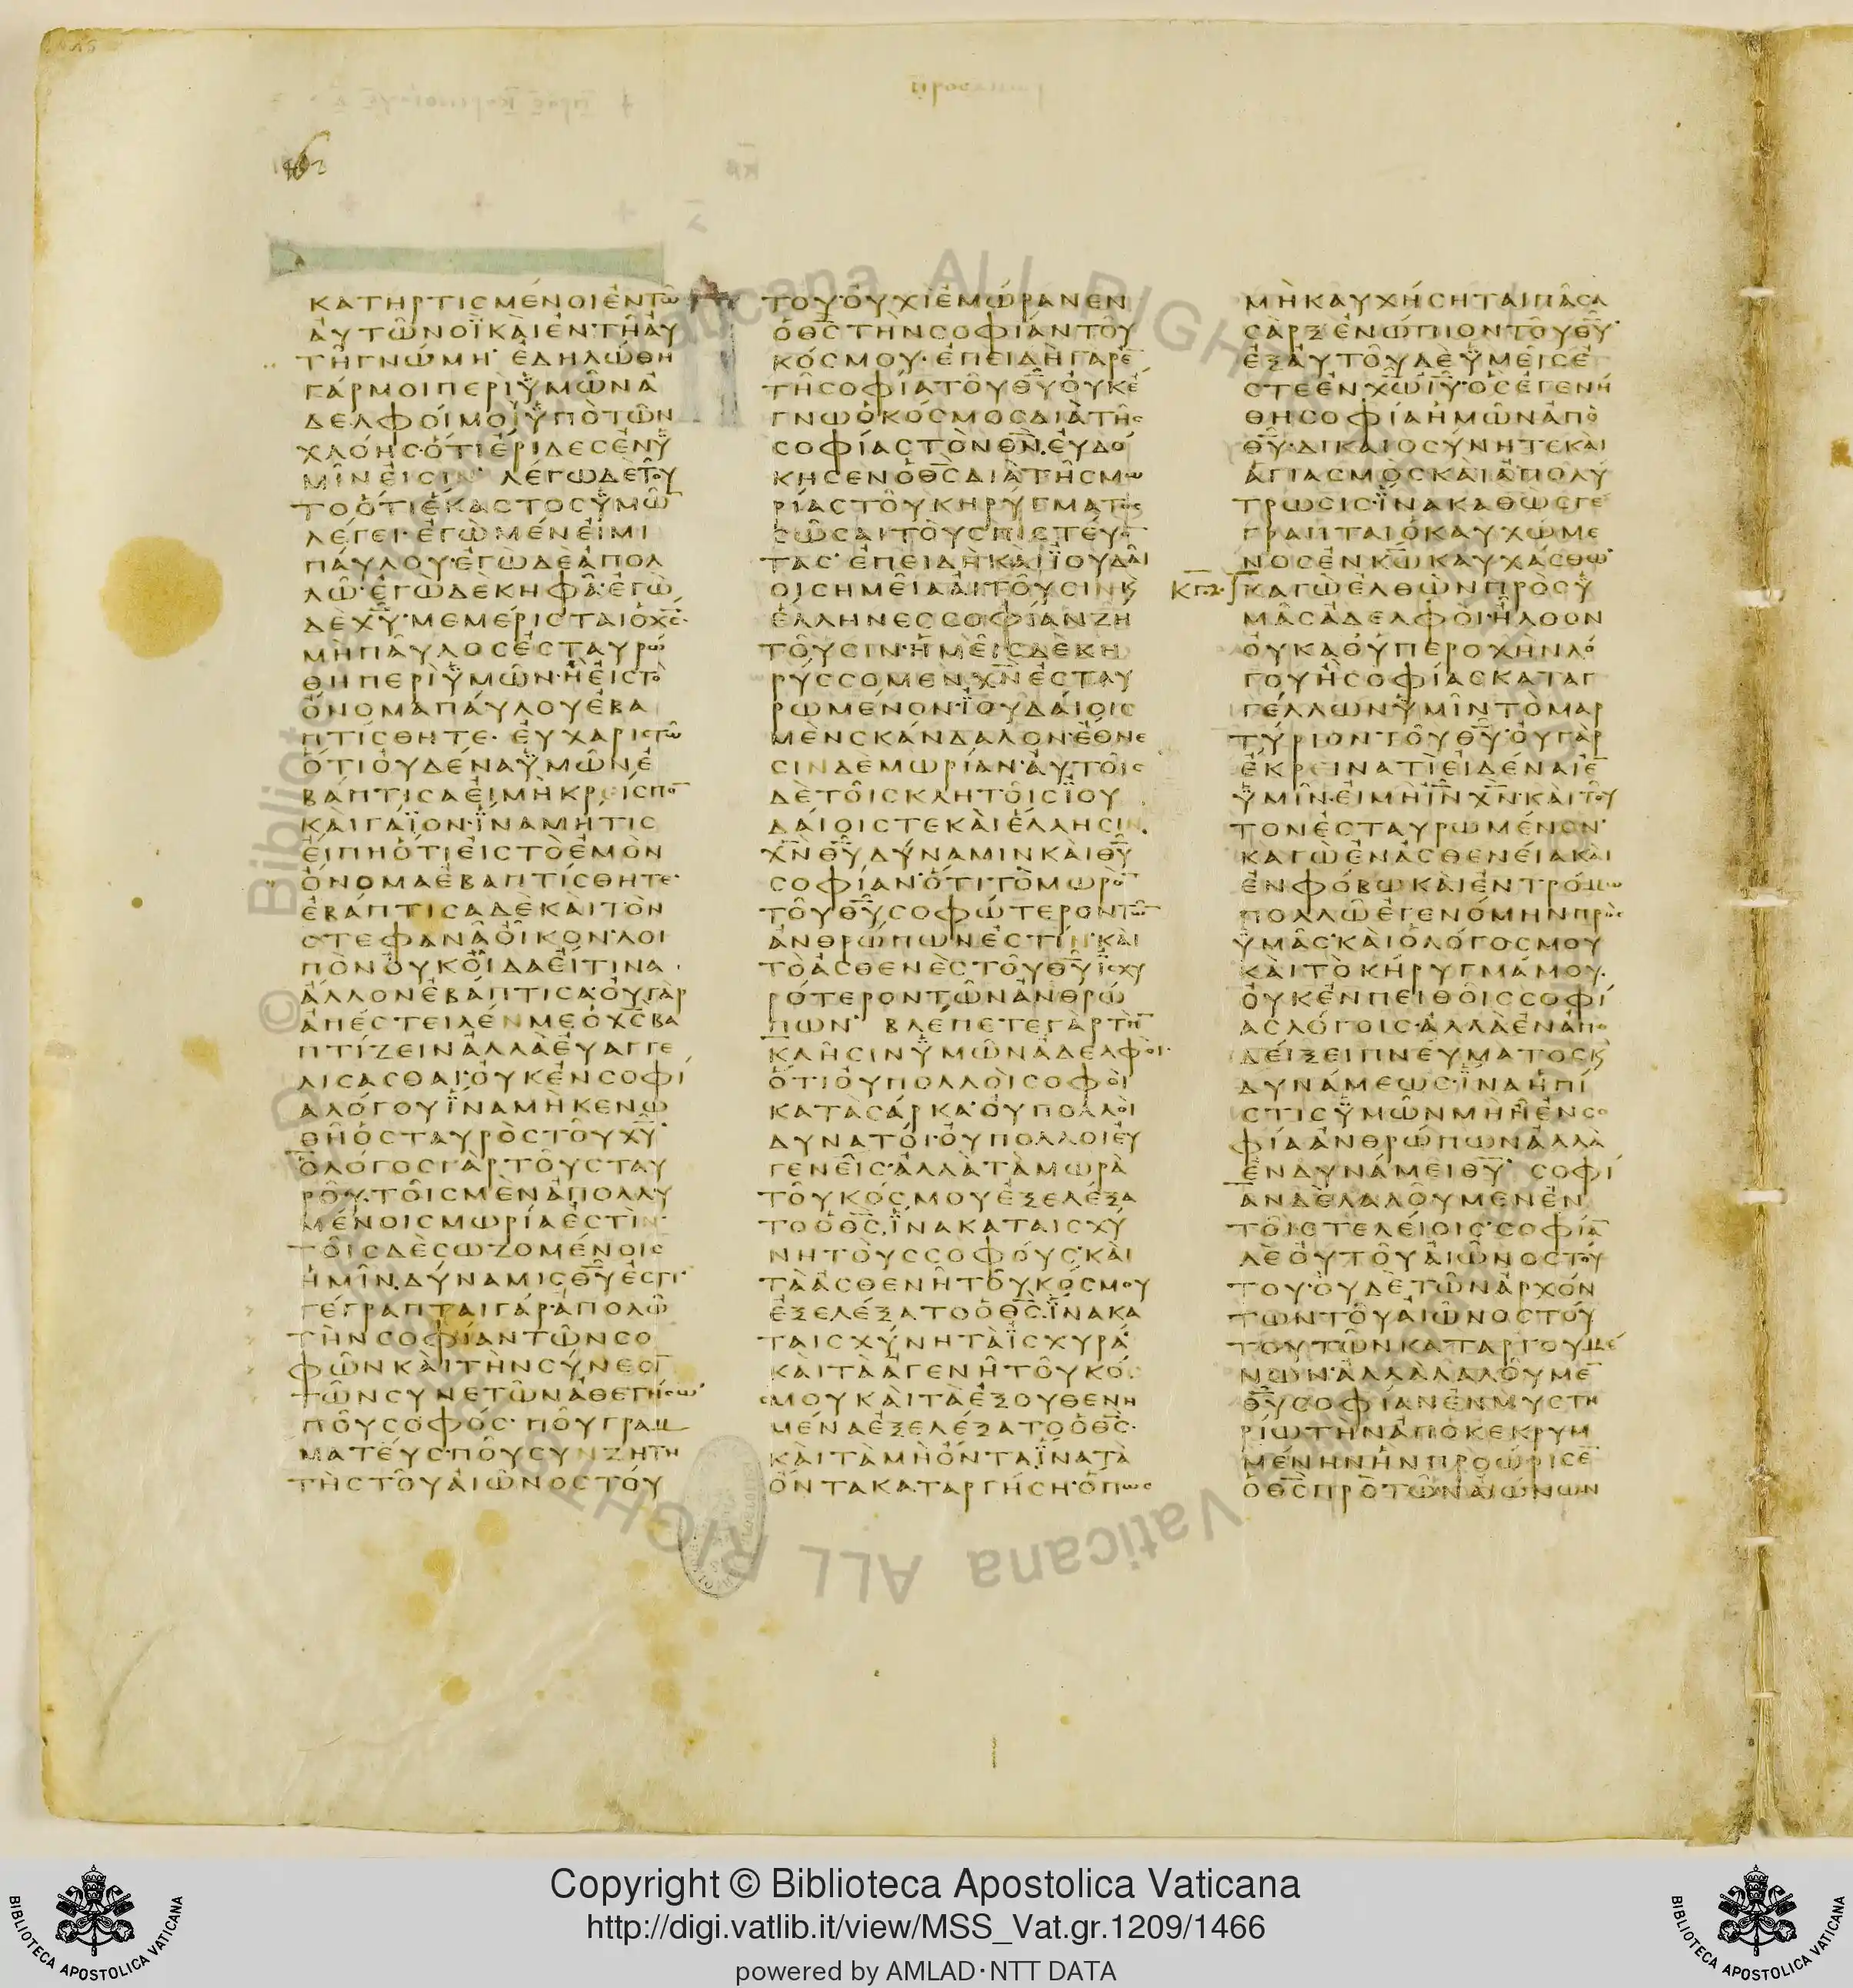 ΚΑΤΗΡΤΙϹΜΕΝΟΙΕΝΤΩ
ΑΥΤΩΝΟΪΚΑΙΕΝΤΗΑΥ
ΤΗΓΝΩΜΗ· ΕΔΗΛΩΘΗ
ΓΑΡΜΟΙΠΕΡΙΫΜΩΝΑ
ΔΕΛΦΟΙΜΟΙΫΠΟΤΩΝ
ΧΛΟΗϹΟΤΙΕΡΙΔΕϹΕΝΫ
ΜΙΝΕΙϹΙΝ· ΛΕΓΩΔΕΤΟΥ
ΤΟΟΤΙΕΚΑϹΤΟϹΫΜΩ̅
ΛΕΓΕΙ·ΕΓΩΜΕΝΕΙΜΙ
ΠΑΥΛΟΥ·ΕΓΩΔΕΑΠΟΛ
ΛΩ·ΕΓΩΔΕΚΗΦΑ·ΕΓΩ
ΔΕΧ̅Υ̅·ΜΕΜΕΡΙϹΤΑΙΟΧ̅Ϲ̅·
ΜΗΠΑΥΛΟϹΕϹΤΑΥΡΩ
ΘΗΠΕΡΙΫΜΩΝ·ΗΕΙϹΤΟ
ΟΝΟΜΑΠΑΥΛΟΥΕΒΑ
ΠΤΙϹΘΗΤΕ· ΕΥΧΑΡΙϹΤΩ
ΟΤΙΟΥΔΕΝΑΫΜΩΝΕ
ΒΑΠΤΙϹΑΕΙΜΗΚΡΕΙϹΠΟ̅
ΚΑΙΓΑΪΟΝ·ΪΝΑΜΗΤΙϹ
ΕΙΠΗΟΤΙΕΙϹΤΟΕΜΟΝ
ΟΝΟΜΑΕΒΑΠΤΙϹΘΗΤΕ·
ΕΒΑΠΤΙϹΑΔΕΚΑΙΤΟΝ
ϹΤΕΦΑΝΑΟΙΚΟΝ·ΛΟΙ
ΠΟΝΟΥΚΟΙΔΑΕΙΤΙΝΑ
ΑΛΛΟΝΕΒΑΠΤΙϹΑ·ΟΥΓΑΡ
ΑΠΕϹΤΕΙΛΕΝΜΕΟΧ̅Ϲ̅ΒΑ
ΠΤΙΖΕΙΝΑΛΛΑΕΥΑΓΓΕ
ΛΙϹΑϹΘΑΙ·ΟΥΚΕΝϹΟΦΙ
ΑΛΟΓΟΥΪΝΑΜΗΚΕΝΩ
ΘΗΟϹΤΑΥΡΟϹΤΟΥΧ̅Υ̅·
ΟΛΟΓΟϹΓΑΡΤΟΥϹΤΑΥ
ΡΟΥ·ΤΟΙϹΜΕΝΑΠΟΛΛΥ
ΜΕΝΟΙϹΜΩΡΙΑΕϹΤΙΝ
ΤΟΙϹΔΕϹΩΖΟΜΕΝΟΙϹ
ΗΜΙΝ·ΔΥΝΑΜΙϹΘ̅Υ̅ΕϹΤΙ·
ΓΕΓΡΑΠΤΑΙΓΑΡ·ΑΠΟΛΩ
ΤΗΝϹΟΦΙΑΝΤΩΝϹΟ
ΦΩΝΚΑΙΤΗΝϹΥΝΕϹΙ̅
ΤΩΝϹΥΝΕΤΩΝΑΘΕΤΗϹΩ·
ΠΟΥϹΟΦΟϹ· ΠΟΥΓΡΑΜ
ΜΑΤΕΥϹ·ΠΟΥϹΥΝΖΗΤΗ
ΤΗϹΤΟΥΑΙΩΝΟϹΤΟΥ
ΤΟΥ·ΟΥΧΙΕΜΩΡΑΝΕΝ
ΟΘ̅Ϲ̅ΤΗΝϹΟΦΙΑΝΤΟΥ
ΚΟϹΜΟΥ· ΕΠΕΙΔΗΓΑΡΕ̅
ΤΗϹΟΦΙΑΤΟΥΘ̅Υ̅ΟΥΚΕ
ΓΝΩΟΚΟϹΜΟϹΔΙΑΤΗϹ
ϹΟΦΙΑϹΤΟΝΘ̅Ν̅·ΕΥΔΟ
ΚΗϹΕΝΟΘ̅Ϲ̅ΔΙΑΤΗϹΜΩ
ΡΙΑϹΤΟΥΚΗΡΥΓΜΑΤΟϹ
ϹΩϹΑΙΤΟΥϹΠΙϹΤΕΥΟ̅
ΤΑϹ· ΕΠΕΙΔΗΚΑΙΪΟΥΔΑΙ
ΟΙϹΗΜΕΙΑΑΙΤΟΥϹΙΝΚ
ΕΛΛΗΝΕϹϹΟΦΙΑΝΖΗ
ΤΟΥϹΙΝ·ΗΜΕΙϹΔΕΚΗ
ΡΥϹϹΟΜΕΝΧ̅Ν̅ΕϹΤΑΥ
ΡΩΜΕΝΟΝ·ΪΟΥΔΑΙΟΙϹ
ΜΕΝϹΚΑΝΔΑΛΟΝ·ΕΘΝΕ
ϹΙΝΔΕΜΩΡΙΑΝ·ΑΥΤΟΙϹ
ΔΕΤΟΙϹΚΛΗΤΟΙϹΪΟΥ
ΔΑΙΟΙϹΤΕΚΑΙΕΛΛΗϹΙΝ
Χ̅Ν̅Θ̅Υ̅ΔΥΝΑΜΙΝΚΑΙΘ̅Υ̅
ϹΟΦΙΑΝ·ΟΤΙΤΟΜΩΡΟ̅
ΤΟΥΘ̅Υ̅ϹΟΦΩΤΕΡΟΝΤΩ̅
ΑΝΘΡΩΠΩΝΕϹΤΙΝ·ΚΑΙ
ΤΟΑϹΘΕΝΕϹΤΟΥΘ̅Υ̅ΪϹΧΥ
ΡΟΤΕΡΟΝΤΩΝΑΝΘΡΩ
ΠΩΝ· ΒΛΕΠΕΤΕΓΑΡΤΗ̅
ΚΛΗϹΙΝΫΜΩΝΑΔΕΛΦΟΙ·
ΟΤΙΟΥΠΟΛΛΟΙϹΟΦΟΙ
ΚΑΤΑϹΑΡΚΑ·ΟΥΠΟΛΛΟΙ
ΔΥΝΑΤΟΙ·ΟΥΠΟΛΛΟΙΕΥ
ΓΕΝΕΙϹ·ΑΛΛΑΤΑΜΩΡΑ
ΤΟΥΚΟϹΜΟΥΕΞΕΛΕΞΑ
ΤΟΟΘ̅Ϲ̅·ΪΝΑΚΑΤΑΙϹΧΥ
ΝΗΤΟΥϹϹΟΦΟΥϹ·ΚΑΙ
ΤΑΑϹΘΕΝΗΤΟΥΚΟϹΜΟΥ
ΕΞΕΛΕΞΑΤΟΟΘ̅Ϲ̅·ΪΝΑΚΑ
ΤΑΙϹΧΥΝΗΤΑΪϹΧΥΡΑ·
ΚΑΙΤΑΑΓΕΝΗΤΟΥΚΟ
ϹΜΟΥΚΑΙΤΑΕΞΟΥΘΕΝΗ
ΜΕΝΑΕΞΕΛΕΞΑΤΟΟΘ̅Ϲ̅·
ΚΑΙΤΑΜΗΟΝΤΑΪΝΑΤΑ
ΟΝΤΑΚΑΤΑΡΓΗϹΗ·ΟΠΩϹ
ΜΗΚΑΥΧΗϹΗΤΑΙΠΑϹΑ
ϹΑΡΞΕΝΩΠΙΟΝΤΟΥΘ̅Υ̅·
ΕΞΑΥΤΟΥΔΕΫΜΕΙϹΕ
ϹΤΕΕΝΧ̅Ω̅Ι̅Υ̅·ΟϹΕΓΕΝΗ
ΘΗϹΟΦΙΑΗΜΩΝΑΠΟ
Θ̅Υ̅·ΔΙΚΑΙΟϹΥΝΗΤΕΚΑΙ
ΑΓΙΑϹΜΟϹΚΑΙΑΠΟΛΥ
ΤΡΩϹΙϹ·ΪΝΑΚΑΘΩϹΓΕ
ΓΡΑΠΤΑΙΟΚΑΥΧΩΜΕ
ΝΟϹΕΝΚ̅Ω̅ΚΑΥΧΑϹΘΩ·
ΚΑΓΩΕΛΘΩΝΠΡΟϹΫ
ΜΑϹΑΔΕΛΦΟΙ·ΗΛΘΟΝ
ΟΥΚΑΘΥΠΕΡΟΧΗΝΛΟ
ΓΟΥΗϹΟΦΙΑϹΚΑΤΑΓ
ΓΕΛΛΩΝΫΜΙΝΤΟΜΑΡ
ΤΥΡΙΟΝΤΟΥΘ̅Υ̅·ΟΥΓΑΡ
ΕΚΡΕΙΝΑΤΙΕΙΔΕΝΑΙΕ̅
ΫΜΙΝ·ΕΙΜΗΙ̅Ν̅Χ̅Ν̅·ΚΑΙΤΟΥ
ΤΟΝΕϹΤΑΥΡΩΜΕΝΟΝ·
ΚΑΓΩΕΝΑϹΘΕΝΕΙΑΚΑΙ
ΕΝΦΟΒΩΚΑΙΕΝΤΡΟΜΩ
ΠΟΛΛΩΕΓΕΝΟΜΗΝΠΡΟϹ
ΫΜΑϹ·ΚΑΙΟΛΟΓΟϹΜΟΥ
ΚΑΙΤΟΚΗΡΥΓΜΑΜΟΥ·
ΟΥΚΕΝΠΕΙΘΟΙϹϹΟΦΙ
ΑϹΛΟΓΟΙϹ·ΑΛΛΑΕΝΑΠΟ
ΔΕΙΞΕΙΠΝΕΥΜΑΤΟϹΚ
ΔΥΝΑΜΕΩϹ·ΪΝΑΗΠΙ
ϹΤΙϹΫΜΩΝΜΗΗΕΝϹΟ
ΦΙΑΑΝΘΡΩΠΩΝΑΛΛΑ
ΕΝΔΥΝΑΜΕΙΘ̅Υ̅· ϹΟΦΙ
ΑΝΔΕΛΑΛΟΥΜΕΝΕΝ
ΤΟΙϹΤΕΛΕΙΟΙϹ·ϹΟΦΙΑ̅
ΔΕΟΥΤΟΥΑΙΩΝΟϹΤΟΥ
ΤΟΥ·ΟΥΔΕΤΩΝΑΡΧΟΝ
ΤΩΝΤΟΥΑΙΩΝΟϹΤΟΥ
ΤΟΥΤΩΝΚΑΤΑΡΓΟΥΜΕ
ΝΩΝ·ΑΛΛΑΛΑΛΟΥΜΕ̅
Θ̅Υ̅ϹΟΦΙΑΝΕΝΜΥϹΤΗ
ΡΙΩΤΗΝΑΠΟΚΕΚΡΥΜ
ΜΕΝΗΝΗΝΠΡΟΩΡΙϹΕ̅
ΟΘ̅Ϲ̅ΠΡΟΤΩΝΑΙΩΝΩΝ
Copyright © Biblioteca Apostolica Vaticana
http://digi.vatlib.it/view/MSS_Vat.gr.1209/1466
powered by AMLAD·NTT DATA
BIBLIOTECA APOSTOLICA VATICANA
BIBLIOTECA APOSTOLICA VATICANA